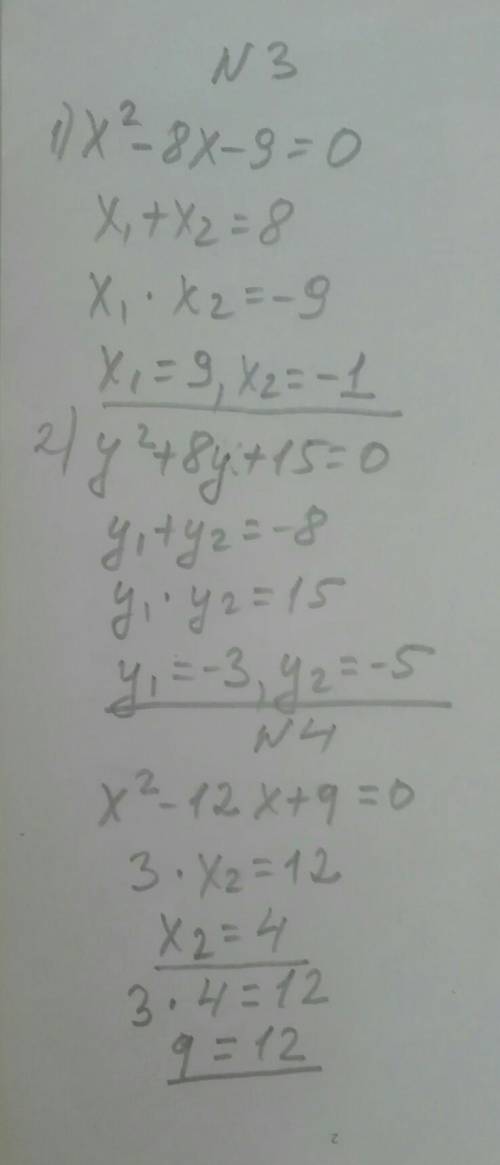 N 3
1) x² - 8x - 9 = 0
x₁ + x₂ = 8
x₁ · x₂ = -9
x₁ = 9, x₂ = -1
2) y² + 8y + 15 = 0
y₁ + y₂ = -8
y₁ · y₂ = 15
y₁ = -3, y₂ = -5
N 4
x² - 12x + q = 0
3 · x₂ = 12
x₂ = 4
3 · 4 = 12
q = 12